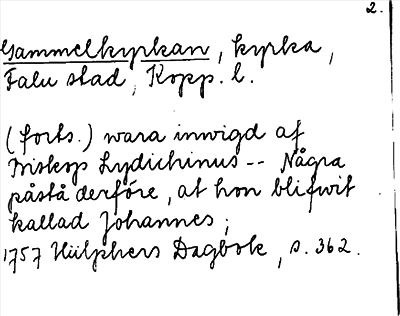 2.
Gammelkyrkan, kyrka,
Falu stad, Kopp. l.
(forts.) wara inwigd af
Biskop Lydichinus -- Några
påstå derföre, at hon blifwit
kallad Johannes;
1757 Hülphers Dagbok, s. 362.